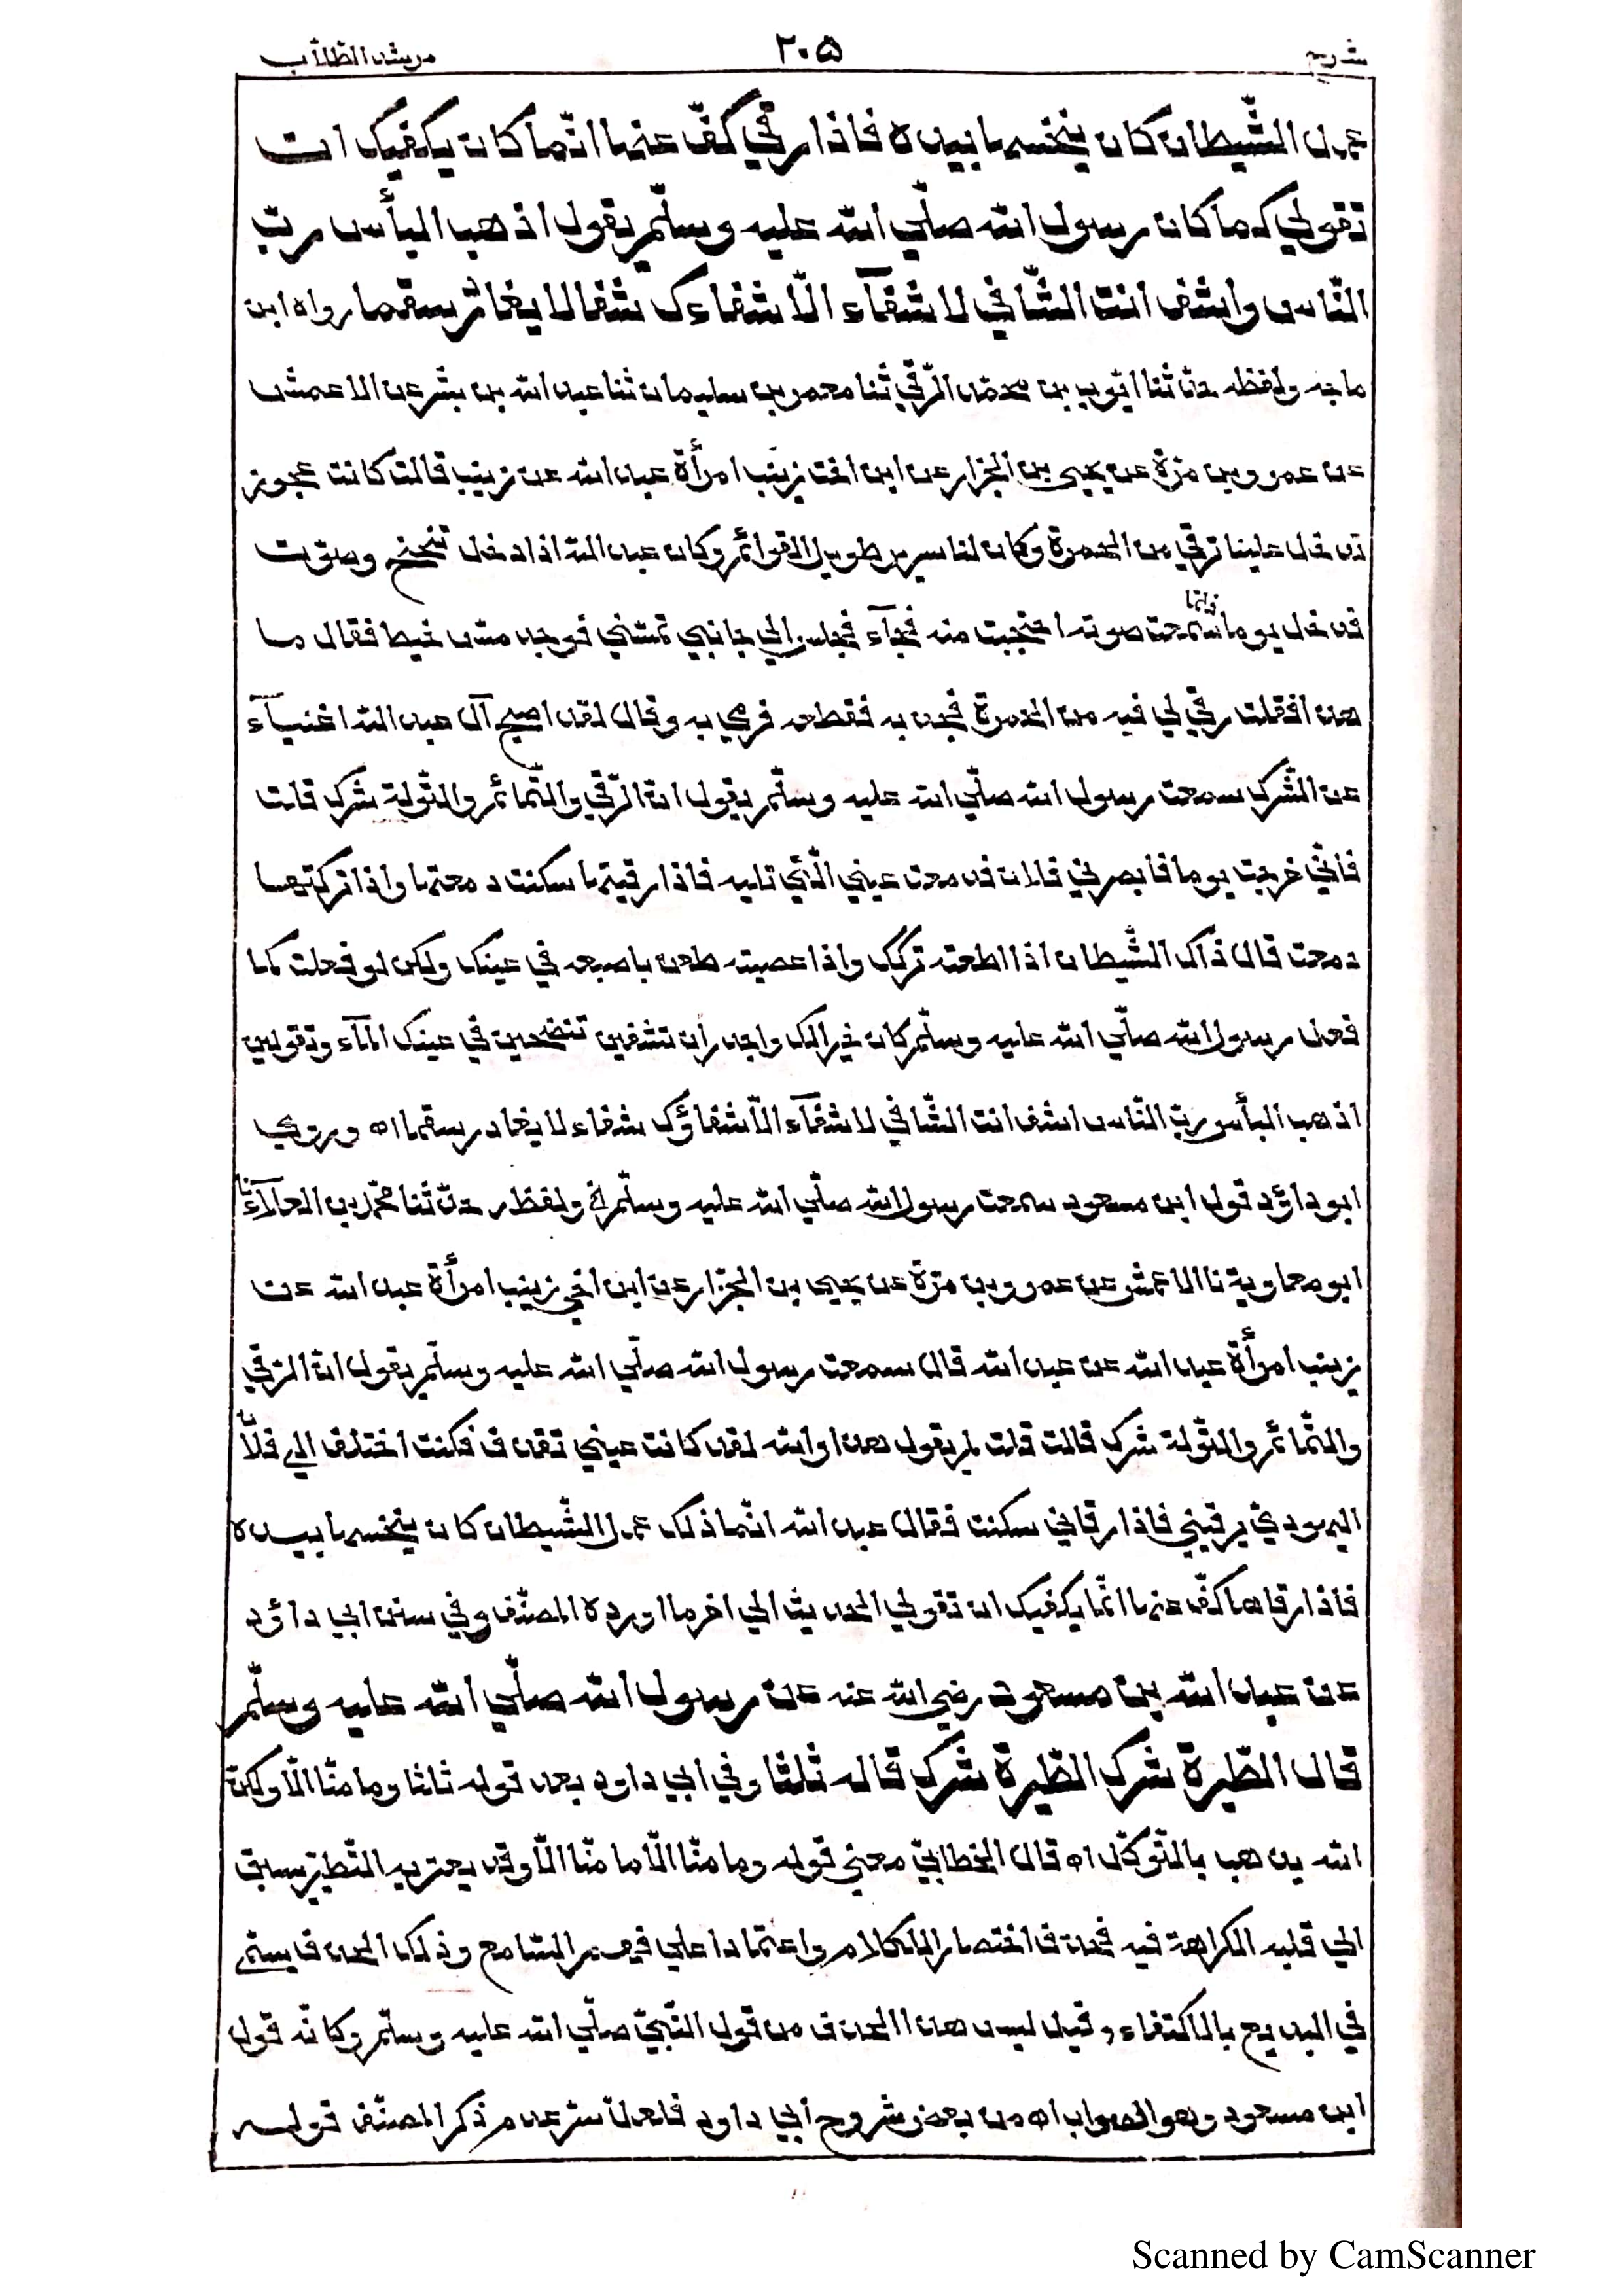 شرح ٢٠٥ مرشد الطلاب
عمل الشّيطان كان ينخسها بيده فاذا رقي كفّ عنها انّما كان يكفيك ان
تقولي كما كان رسول الله صلّي الله عليه وسلّم يقول اذهب البأس ربّ
النّاس واشف انت الشّافي لا شفآء الّا شفاءك شفا لا يغادر سقما رواه ابن
ماجه ولفظه حدّثنا ايّوب بن محمّد الرّقّي ثنا معمر بن سليمان ثنا عبد الله بن بشر عن الاعمش
عن عمرو بن مرّة عن يحيي بن الجزار عن ابن اخت زينب امرأة عبد الله عن زينب قالت كانت عجوز
تدخل علينا ترقي من الحمرة وكان لنا سرير طويل القوائم وكان عبد الله اذا دخل تنحنح وصوّت
فدخل يوما فلمّا سمعت صوته احتجبت منه فجآء فجلس الي جانبي فمسّني فوجد مسّ خيط فقال ما
هذا فقلت رقي لي فيه من الحمرة فجذبه فقطعه فرمي به وقال لقد اصبح آل عبد الله اغنيآء
عن الشّرك سمعت رسول الله صلّي الله عليه وسلّم يقول انّ الرّقي والتّمائم والتّولة شرك قلت
فانّي خرجت يوما فابصرني فلان فدمعت عيني الّتي تليه فاذا رقيتها سكنت دمعتها واذا تركتها
دمعت قال ذاك الشّيطان اذا اطعته تركك واذا عصيته طعن باصبعه في عينك ولكن لو فعلت كما
فعل رسول الله صلّي الله عليه وسلّم كان خيرا لك واجدر ان تشفين تنضحين في عينك المآء وتقولين
اذهب البأس ربّ النّاس اشف انت الشّافي لا شفآء الّا شفاؤك شفاء لا يغادر سقما اه وروي
ابو داؤد قول ابن مسعود سمعت رسول الله صلّي الله عليه وسلّم الخ ولفظه حدّثنا محمّد بن العلآء نا
ابو معاوية نا الاعمش عن عمرو بن مرّة عن يحيي بن الجزار عن ابن اخي زينب امرأة عبد الله عن
زينب امرأة عبد الله عن عبد الله قال سمعت رسول الله صلّي الله عليه وسلّم يقول انّ الرّقي
والتّمائم والتّولة شرك قالت قلت لم يقول هذا والله لقد كانت عيني تقذف فكنت اختلف الي فلان
اليهودي يرقيني فاذا رقاني سكنت فقال عبد الله انّما ذلك عمل الشّيطان كان ينخسها بيده
فاذا رقاها كفّ عنها انّما يكفيك ان تقولي الحديث الي اخر ما اورده المصنّف وفي سنن ابي داؤد
عن عبد الله بن مسعود رضي الله عنه عن رسول الله صلّي الله عليه وسلّم
قال الطّيرة شرك الطّيرة شرك قاله ثلثا وفي ابي داود بعد قوله ثلثا وما منّا الّا ولكن
الله يذهب بالتّوكّل اه قال الخطابيّ معني قوله وما منّا الّا ما منّا الّا وقد يعتريه التّطيّر يسبق
الي قلبه الكراهة فيه فحذف اختصارا للكلام واعتمادا علي فهم السّامع وذلك الحذف يسمّي
في البديع بالاكتفاء وقيل ليس هذا الحذف من قول النّبيّ صلّي الله عليه وسلّم وكانّه قول
ابن مسعود وهو الصواب اه من بعض شروح ابي داود فلعلّ سرّ عدم ذكر المصنّف قوله
Scanned by CamScanner